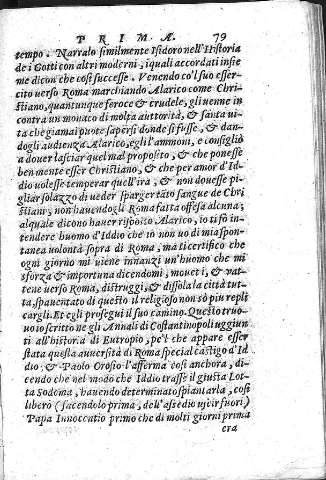 PRIMA. 79
tempo. Narralo similmente Isidoro nell'Historia
de i Gotti con altri moderni, i quali accordati insie
me dicon che cosi successe. Venendo co'l suo esser-
cito verso Roma marchiando Alarico come Chri-
stiano, quantunque feroce & crudele, gli venne in
contra un monaco di molta auttorità, & santa vi-
ta che giamai puote sapersi donde si fusse, & dan-
dogli audienza Alarico, egli l'ammonì, e consigliò
a dover lasciar quel mal proposito, & che ponesse
ben mente esser Christiano, & che per amor d'Id-
dio volesse temperar quell'ira, & non dovesse pi-
gliar solazzo di veder sparger tāto sangue de Chri
stiani, non havendogli Roma fatta offesa alcuna;
al quale dicono haver risposto Alarico, io ti fò in-
tendere huomo d'Iddio che io non vo di mia spon-
tanea volontà sopra di Roma, ma ti certifico che
ogni giorno mi viene innanzi un'huomo che mi
sforza & importuna dicendomi, moveti, & vat-
tene verso Roma, distruggi, & dissola la città tut-
ta, spaventato di questo il religioso non sò più repli
cargli. Et egli proseguì il suo camino. Questo truo-
vo io scritto ne gli Annali di Costantinopoli uggiun
ti all'historia di Eutropio, pe'l che appare esser
stata questa avversità di Roma special castigo d'Id
dio; & Paolo Orosio l'afferma così anchora, di-
cendo che nel modo che Iddio trasse il giusto Lot-
ta Sodoma, havendo determinato spianarla, così
liberò (facendolo prima, dell'assedio uscir fuori)
Papa Innocentio primo che di molti giorni prima
era